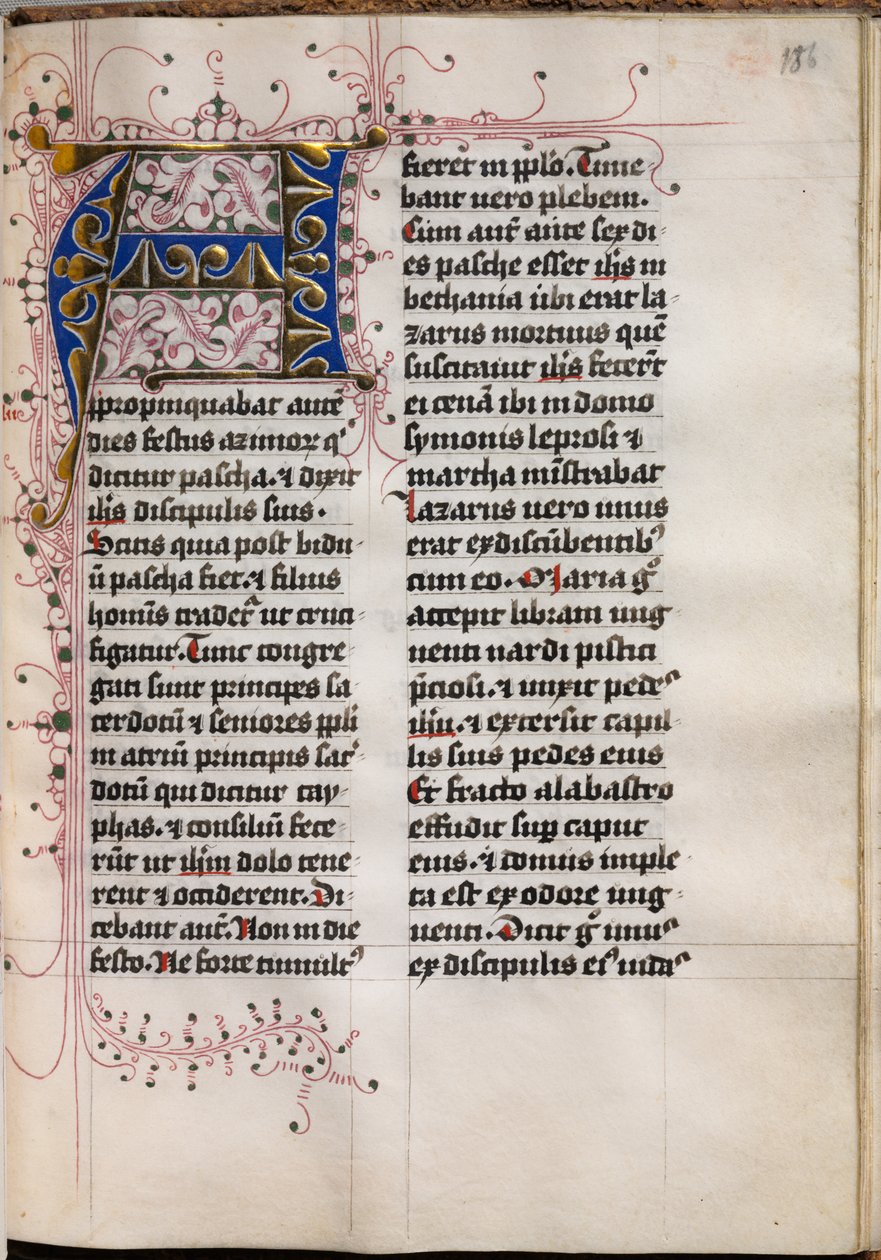 186
Appropinquabat autē
dies festus azimoꝝ qͥ
dicitur pascha. ⁊ dixit
ih̄s discipulis suis.
Scitis quia post bidu-
ū pascha fiet. ⁊ filius
homīs tradet᷑ ut cruci-
figatur. Tunc congre-
gati sunt principes sa-
cerdotū ⁊ seniores ppl̄i
in atriū principis sac᷑-
dotū qui dicitur cay-
phas. ⁊ consiliū fece-
rūt ut ih̄m dolo tene-
rent ⁊ occiderent. Di-
cebant aut̄. Non in die
festo. Ne forte tumultꝰ
fieret in ppl̄o. Time-
bant uero plebem.
Cūm aut̄ ante sex di-
es pasche esset ih̄s in
bethania ubi erat la-
zarus mortuus quē
suscitauit ih̄s fecer̄t
ei cenā ibi in domo
symonis leprosi ⁊
martha mīstrabat
Lazarus uero unus
erat ex discūbentibꝰ
cum eo. Maria gͦ
accepit libram ung-
uenti nardi pistici
p̄ciosi. ⁊ unxit pedes
ih̄u. ⁊ extersit capil-
lis suis pedes eius
Et fracto alabastro
effudit sup caput
eius. ⁊ domus imple-
ta est ex odore ung-
uenti. Dicit gͦ unus
ex discipulis eiꝰ iudas